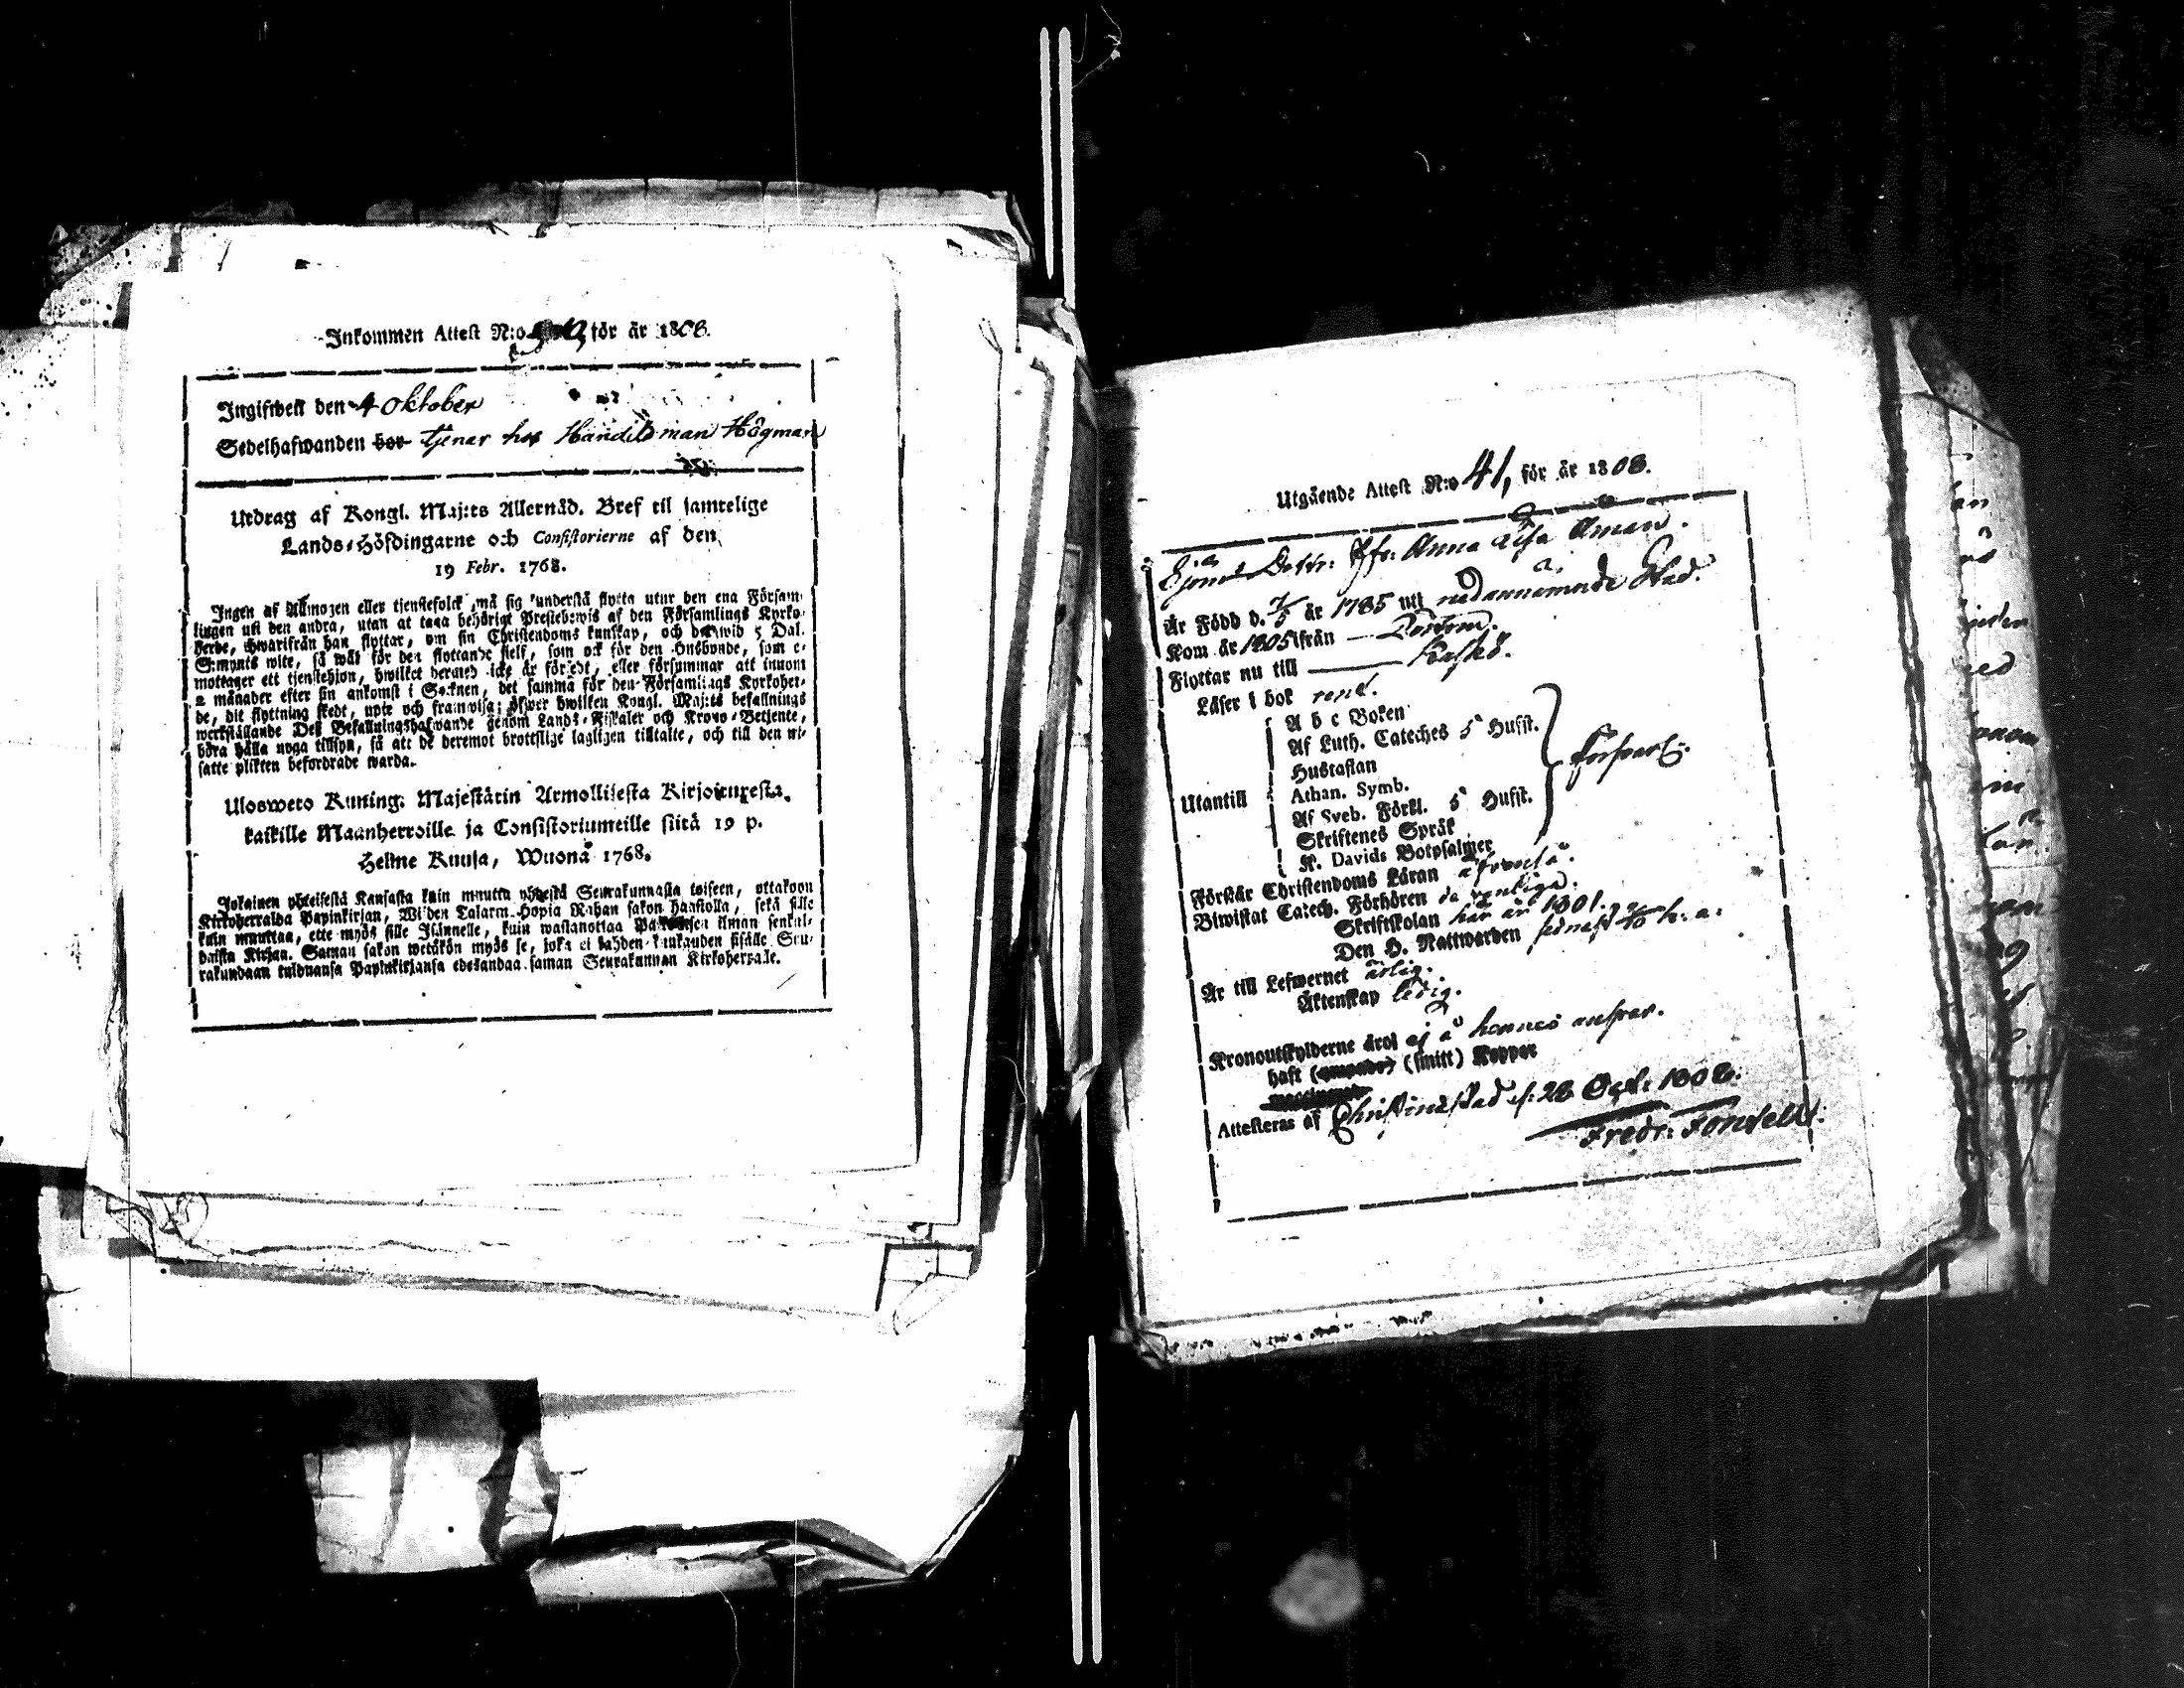 Inkommen Attest N:o för år 1808.
Ingifwen den 4 Oktober
Sedelhafwanden bor tjenar hos Handelsman Högman
Utdrag af Kongl. Maj:ts Allernåd. Bref til samtelige
Lands-Höfdingarne och Consistorierne af den
19 Febr. 1768.
Ingen af Allmogen eller tjenstefolck må sig understå flytta utur den ena Försam-
lingen uti den andra, utan at taga behörigt Prestebewis af den Församlings Kyrko-
herde, hwarifrån han flyttar, om sin Christendoms kunskap, och det wid 5 Dal.
S:mynts wite, så wäl för den flyttande sielf, som ock för den Husbonde, som e-
mottager ett tjenstehjon, hwilket dermed icke är försedt, eller försummar att innom
2 månader efter sin ankomst i Socknen, det samma för den Församlings Kyrkoher-
de, dit flyttning skedt, upte och framwisa; öfwer hwilken Kongl. Maj:ts befallnings
werkställande Dess Befallningshafwande genom Lands-Fiskaler och Krono-Betjente,
böra hålla noga tillsyn, så att de deremot brottslige lagligen tilltalte, och till den ut-
satte plikten befordrade warda.
Ulosweto Kuning: Majestätin Armollisesta Kirjoituxesta,
kaikille Maanherroille ja Consistoriumeille siitä 19 p.
Helme Kuusa, Wuonä 1768.
Jokainen yhteisestä Kansasta kuin muutta yhdestä Seurakunnasta toiseen, ottakoon
Kirkoherralda Papinkirjan, Wijden Talarin Hopia Rahan sakon haastolla, sekä sille
kuin muuttaa, ette myös sille Isännelle, kuin wastanottaa Palwelisen ilman senkal-
daista Kirjan. Saman sakon wetäkön myös se, joka ei kahden kuukauden sisälle Seu-
rakundaan tulduansa Papinkirjansa edesandaa saman Seurakunnan Kirkoherralle.
Utgående Attest N:o 41, för år 1808.
Dottr: Jfr: Anna Lisa Åman.
Är Född d. 7/5 år 1785 uti nedannämnde Stad.
Kom år 1805 ifrån
Flyttar nu till Kaskö.
Läser i bok rent.
Utantill
A b c Boken
Af Luth. Cateches 5 Hufst.
Hustaflan
Athan. Symb.
Af Sveb. Förkl. 5 Hufst.
Skriftenes Språk
K. Davids Botpsalmer
Försvarl:
Förstår Christendoms Läran äfvenså.
Biwistat Catech. Förhören
Skriftskolan här år 1801.
Den H. Nattwarden sednast h: a:
Är till Lefwernet ärlig.
Äktenskap ledig.
Kronoutskylderne äro ej å hennes ansvar.
haft (smitt) Koppor
Attesteras af Christinæstad d: 28 Sept: 1808.
Fredr: Fonsell.